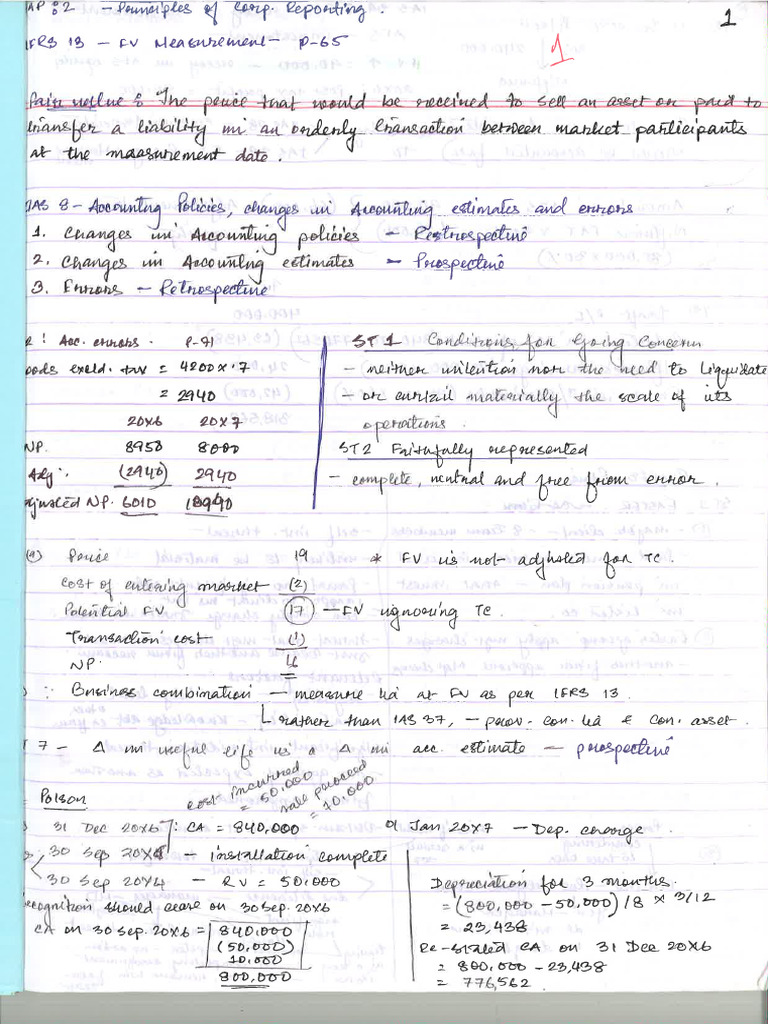 AP : 2 - Principles of Corp. Reporting.
1
IFRS 13 - FV Measurement - P-65
1
Fair value : The price that would be received to sell an asset or paid to
transfer a liability in an orderly transaction between market participants
at the measurement date.
IAS 8 - Accounting Policies, changes in Accounting estimates and errors
1. Changes in Accounting policies - Retrospective
2. Changes in Accounting estimates - Prospective
3. Errors - Retrospective
2 : Acc. errors. P-71
oods exeld. inv = 4200 x .7
= 2940
20x6 20x7
NP. 8950 8000
Adj. (2940) 2940
djusted NP. 6010 10940
ST 1 Conditions for Going Concern
- neither intention nor the need to liquidate
- or curtail materially the scale of its
operations.
ST 2 Faithfully represented
- complete, neutral and free from error.
(a) Price 19 * FV is not adjusted for TC.
Cost of entering market (2)
Potential FV 17 - FV ignoring TC.
Transaction cost (1)
NP. 16
: Business combination - measure lia at FV as per IFRS 13.
rather than IAS 37, - prov. con. lia & con. asset.
T 7 - Δ in useful life is a Δ in acc. estimate - prospective
Poison
cost incurred = 50,000
sale proceed = 10,000
31 Dec 20x6 : CA = 840,000 01 Jan 20x7 - Dep. charge
30 Sep 20x6 - installation complete
30 Sep 20x4 - RV = 50,000
ecognition should cease on 30 Sep. 20x6
CA on 30 Sep. 20x6 = 840,000
(50,000)
10,000
800,000
Depreciation for 3 months.
= (800,000 - 50,000)/8 x 3/12
= 23,438
Re-stated CA on 31 Dec 20x6
= 800,000 - 23,438
= 776,562